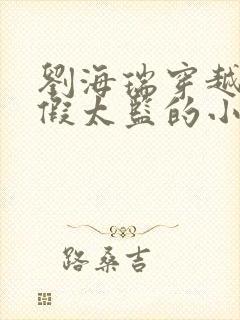 劉海瑞穿越
假太監的小
路桑吉